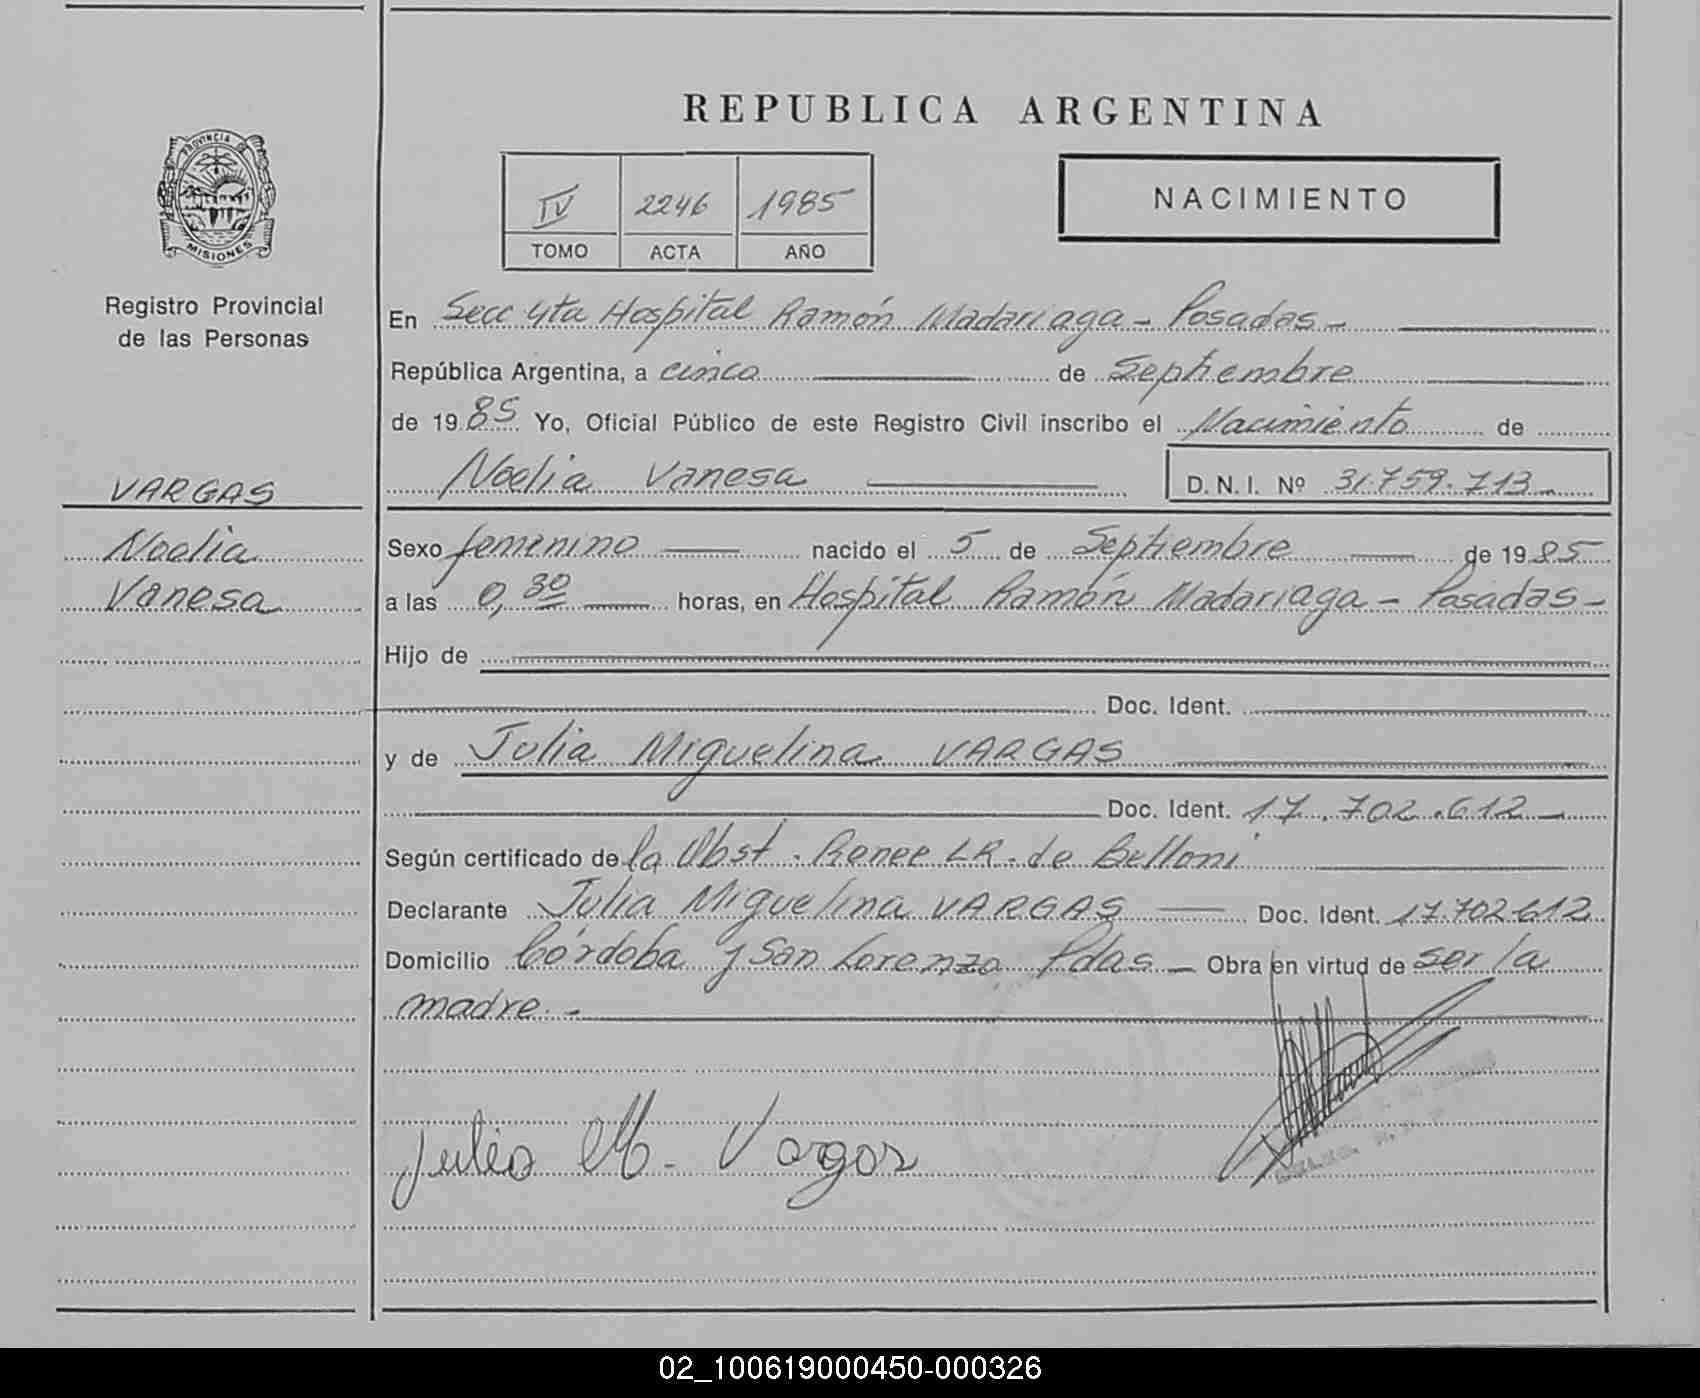 REPUBLICA ARGENTINA
PROVINCIA DE
MISIONES
Registro Provincial
de las Personas
IV 2246 1985
TOMO ACTA AÑO
NACIMIENTO
En Secc 4ta Hospital Ramón Madariaga - Posadas -
República Argentina, a cinco de Septiembre
de 1985 Yo, Oficial Público de este Registro Civil inscribo el Nacimiento de
Noelia Vanesa D.N.I. Nº 31.759.713
VARGAS
Noelia
Vanesa
Sexo femenino nacido el 5 de Septiembre de 1985
a las 0,30 horas, en Hospital Ramón Madariaga - Posadas -
Hijo de
Doc. Ident.
y de Julia Miguelina VARGAS
Doc. Ident. 17.702.612 -
Según certificado de la Obst. Renee LR. de Belloni
Declarante Julia Miguelina VARGAS Doc. Ident. 17.702.612
Domicilio Córdoba y San Lorenzo Pdas - Obra en virtud de ser la
madre. -
Julia M. Vargas
02_100619000450-000326